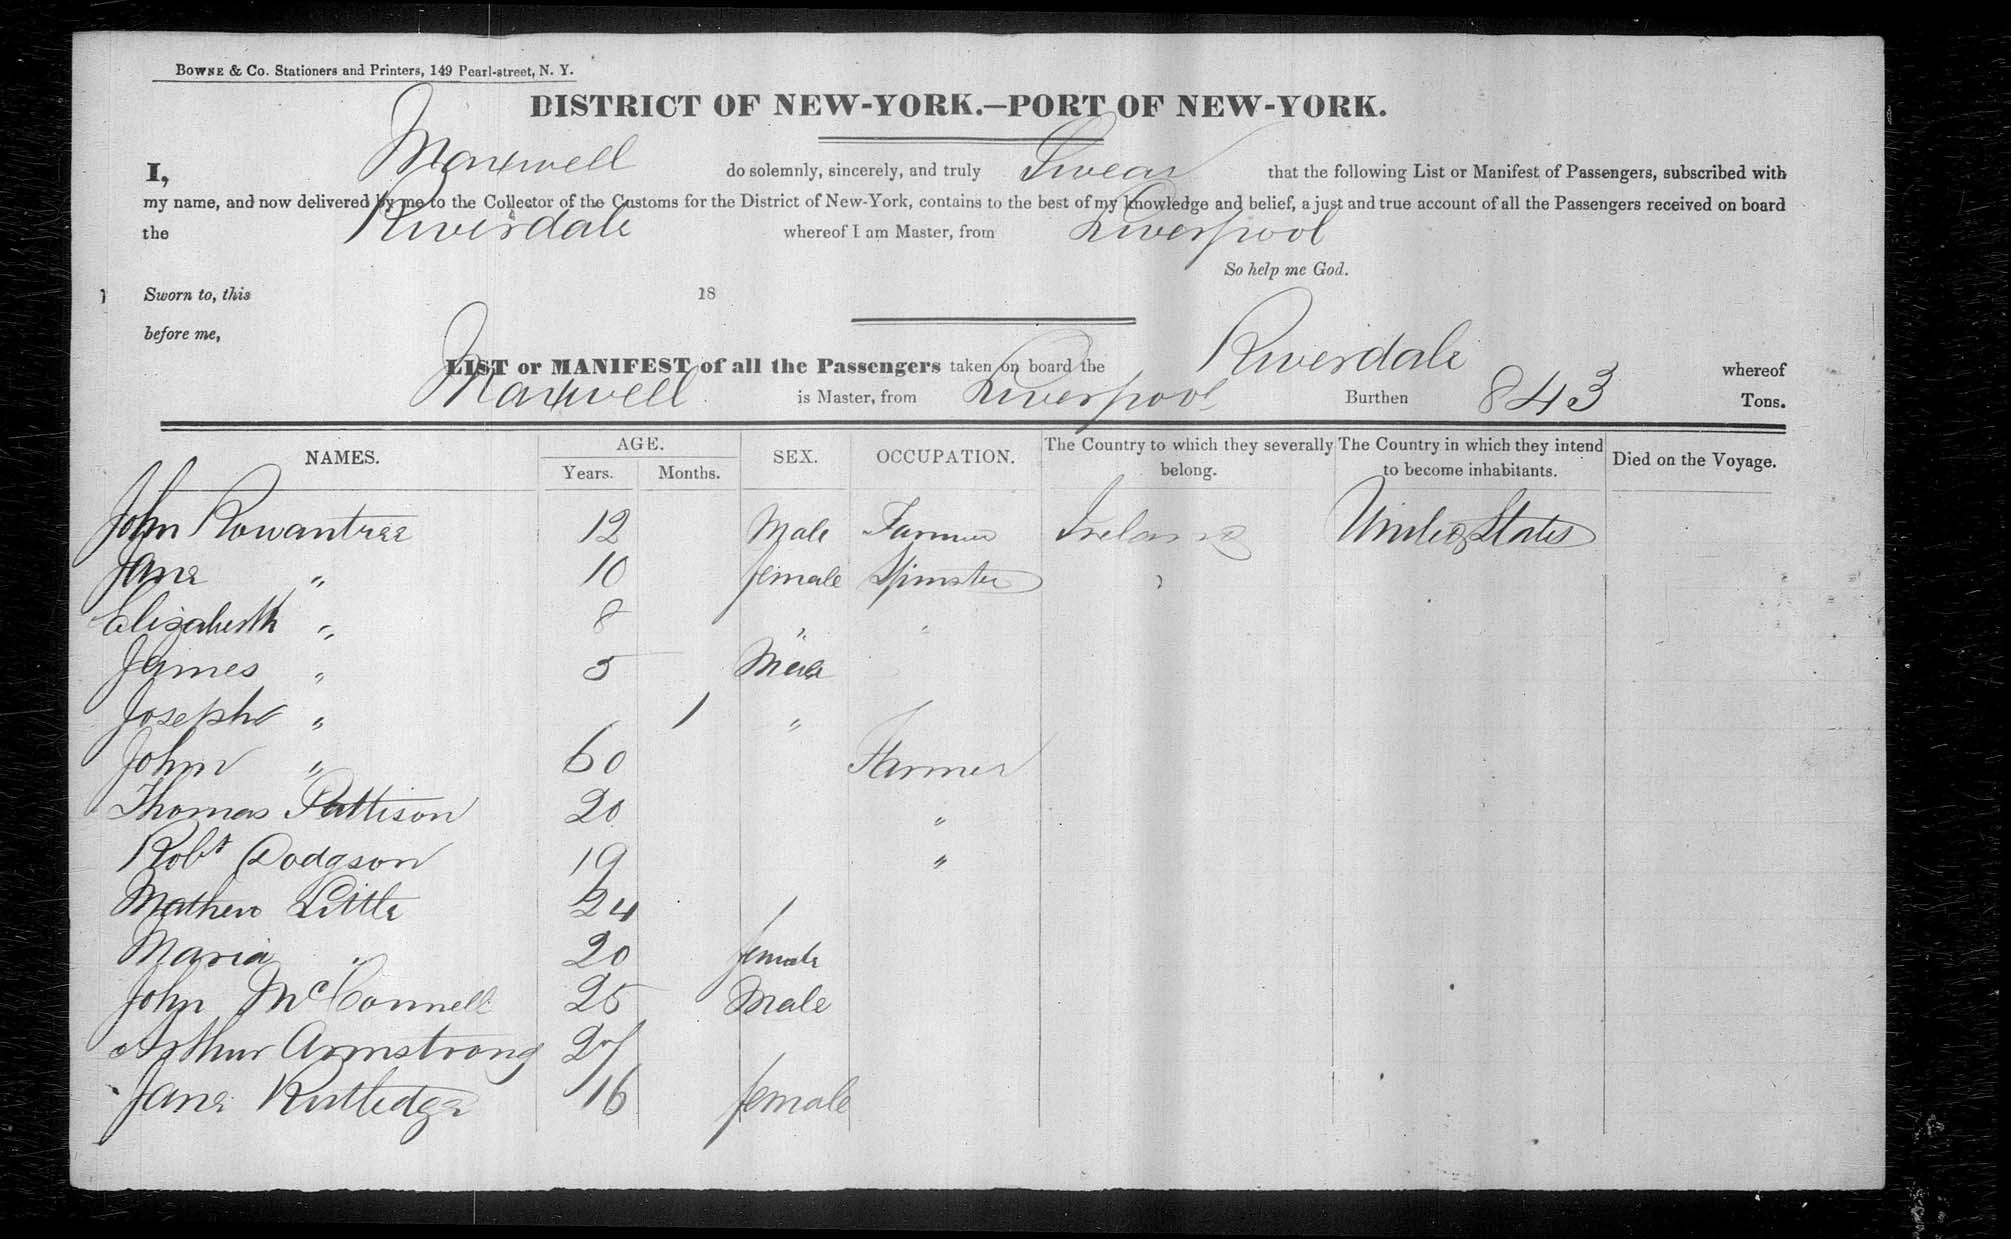 BOWNE & Co. Stationers and Printers, 149 Pearl-street, N. Y.
DISTRICT OF NEW-YORK.—PORT OF NEW-YORK.
I, Maxwell do solemnly, sincerely, and truly Swear that the following List or Manifest of Passengers, subscribed with
my name, and now delivered by me to the Collector of the Customs for the District of New-York, contains to the best of my knowledge and belief, a just and true account of all the Passengers received on board
the Riverdale whereof I am Master, from Liverpool
So help me God.
Sworn to, this 18
before me,
LIST or MANIFEST of all the Passengers taken on board the Riverdale whereof
Maxwell is Master, from Liverpool Burthen 843 Tons.
NAMES. AGE. Years. Months. SEX. OCCUPATION. The Country to which they severally belong. The Country in which they intend to become inhabitants. Died on the Voyage.
John Rowantree 12 Male Farmer Ireland United States
Jane " 10 female Spinster "
Elisabeth " 8 " "
James " 5 Male
Joseph " 1 "
John " 60 Farmer
Thomas Pattison 20 "
Robt Dodgson 19 "
Mathew Little 24
Maria " 20 female
John McConnell 25 Male
Arthur Armstrong 27
Jane Rutledge 16 female